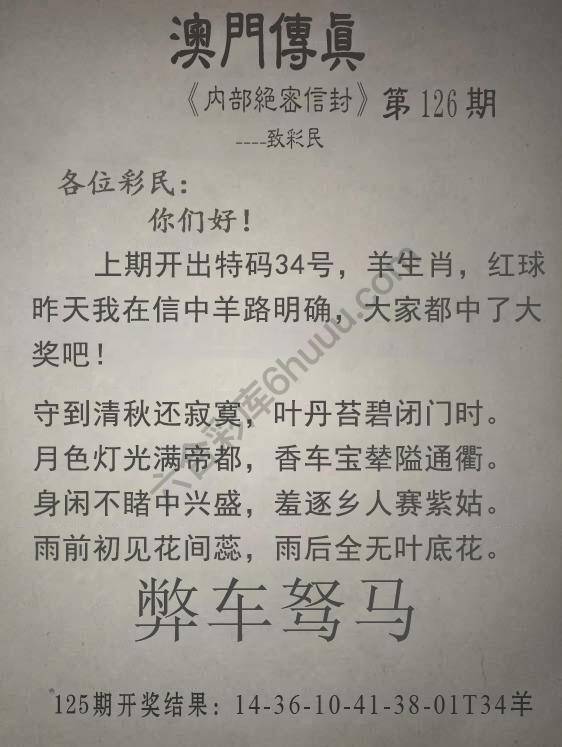 澳門傳眞
《内部絕密信封》第126期
----致彩民
各位彩民：
你们好！
上期开出特码34号，羊生肖，红球
昨天我在信中羊路明确，大家都中了大
奖吧！
守到清秋还寂寞，叶丹苔碧闭门时。
月色灯光满帝都，香车宝辇隘通衢。
身闲不睹中兴盛，羞逐乡人赛紫姑。
雨前初见花间蕊，雨后全无叶底花。
弊车驽马
125期开奖结果：14-36-10-41-38-01T34羊
六合彩库6huuu.com